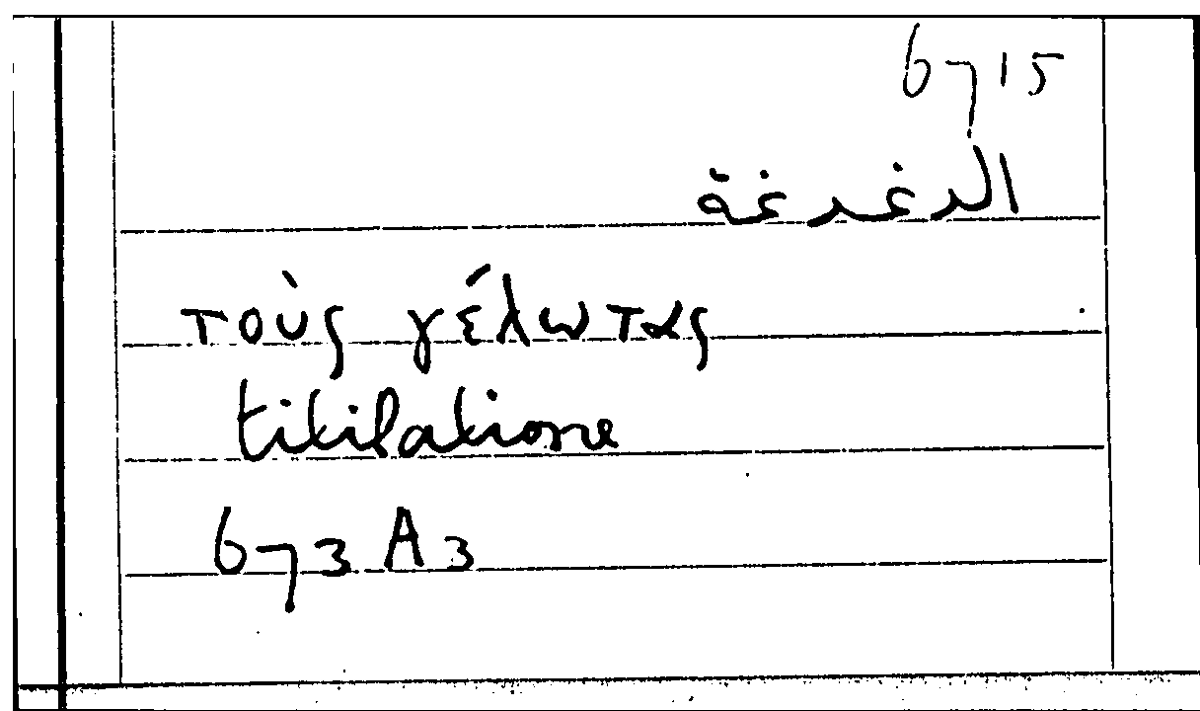 6715
الدغدغة
τοὺς γέλωτας
titilatione
673 A3